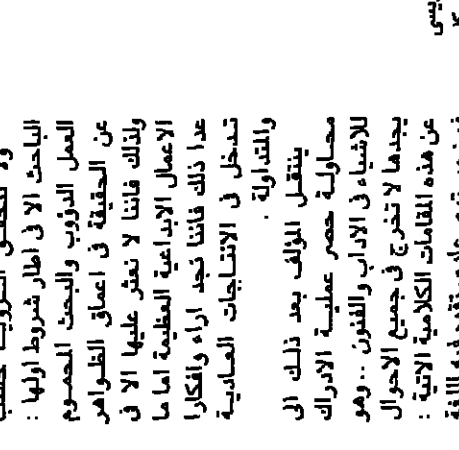 ولا تتحقق الرؤية حسب
الباحث الا في اطار شروط اولها :
العمل الدؤوب والبحث المحموم
عن الحقيقة في اعماق الظواهر
ولذلك فاننا لا نعثر عليها الا في
الاعمال الابداعية العظيمة اما ما
عدا ذلك فاننا نجد اراء وافكارا
تدخل في الانتاجات العادية
والمتداولة .
ينتقل المؤلف بعد ذلك الى
محاولة حصر عملية الادراك
للاشياء في الاداب والفنون .. وهو
يجدها لا تخرج في جميع الاحوال
عن هذه المقامات الكلامية الاتية :